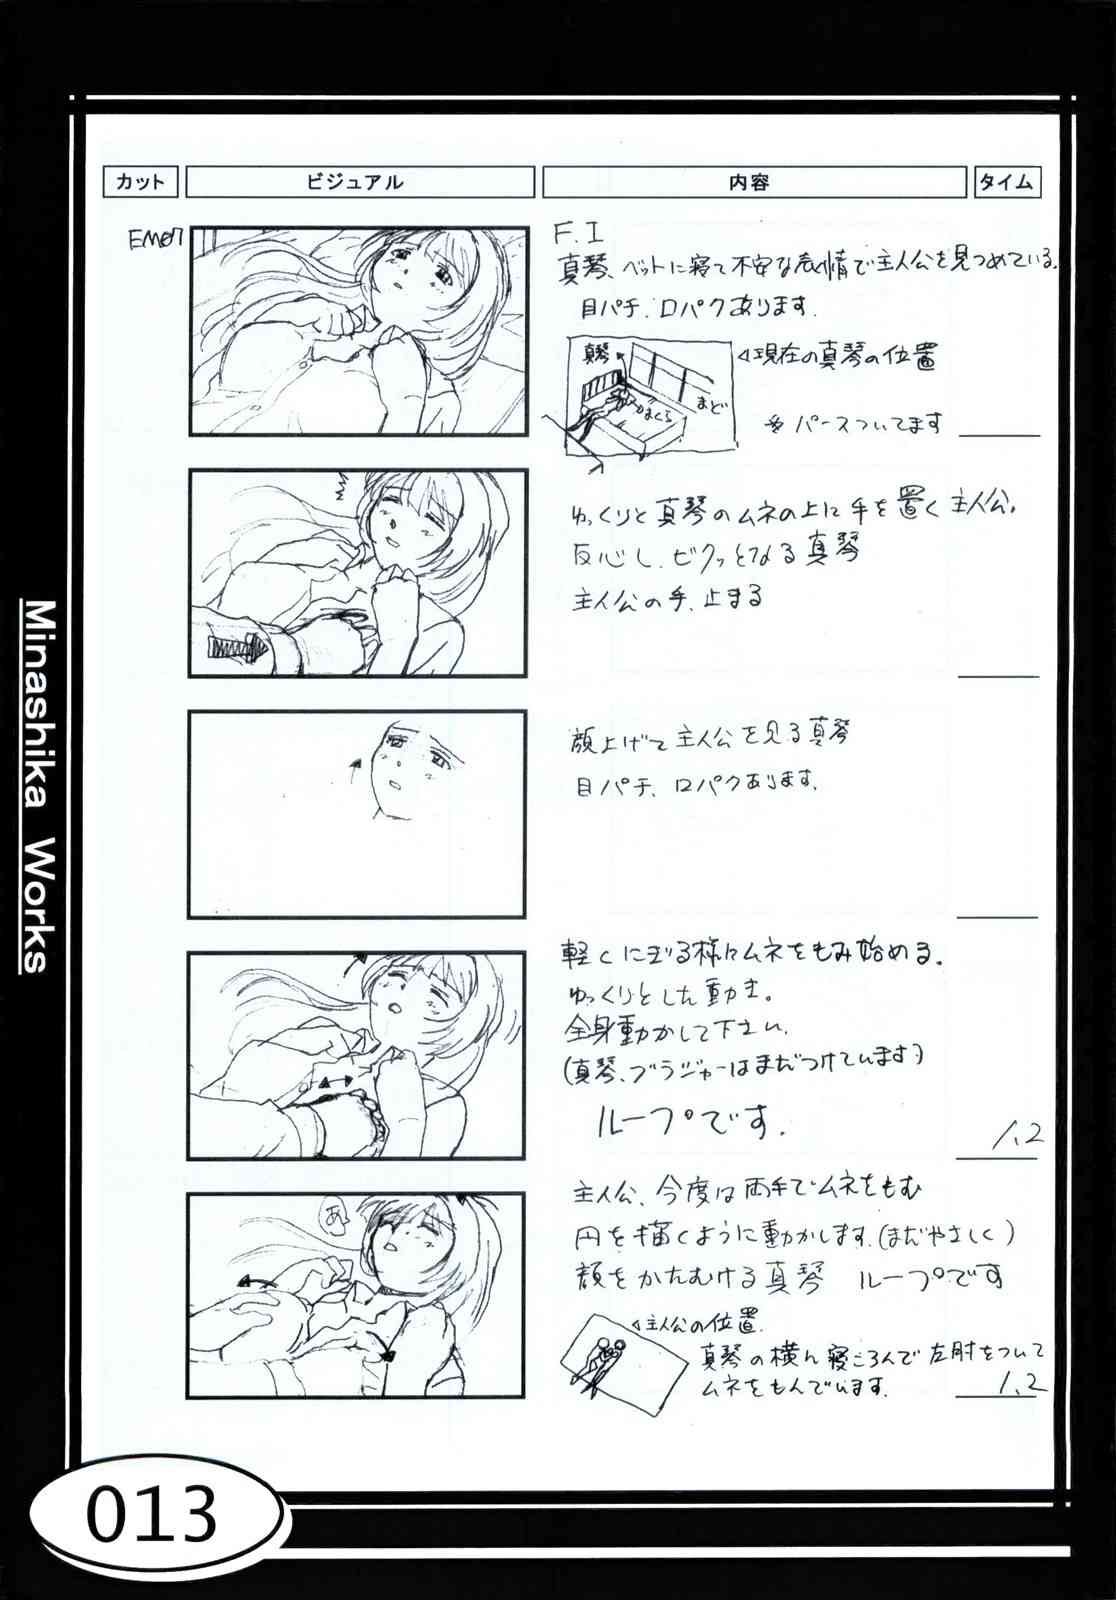 カット
ビジュアル
内容
タイム
EM07
F.I
真琴、ベットに寝て不安な表情で主人公を見つめている。
目パチ、口パクあります。
真琴
まくら
まど
◁現在の真琴の位置
※パースついてます
ゆっくりと真琴のムネの上に手を置く主人公。
反応し、ビクッとなる真琴
主人公の手、止まる
顔上げて主人公を見る真琴
目パチ、口パクあります。
軽くにぎる様にムネをもみ始める。
ゆっくりとした動き。
全身動かして下さい。
(真琴、ブラジャーはまだつけています)
ループです。
1.2
あっ
主人公、今度は両手でムネをもむ
円を描くように動かします。(まだやさしく)
顔をかたむける真琴 ループです
◁主人公の位置。
真琴の横に寝ころんで左肘をついて
ムネをもんでいます。
1.2
Minashika Works
013